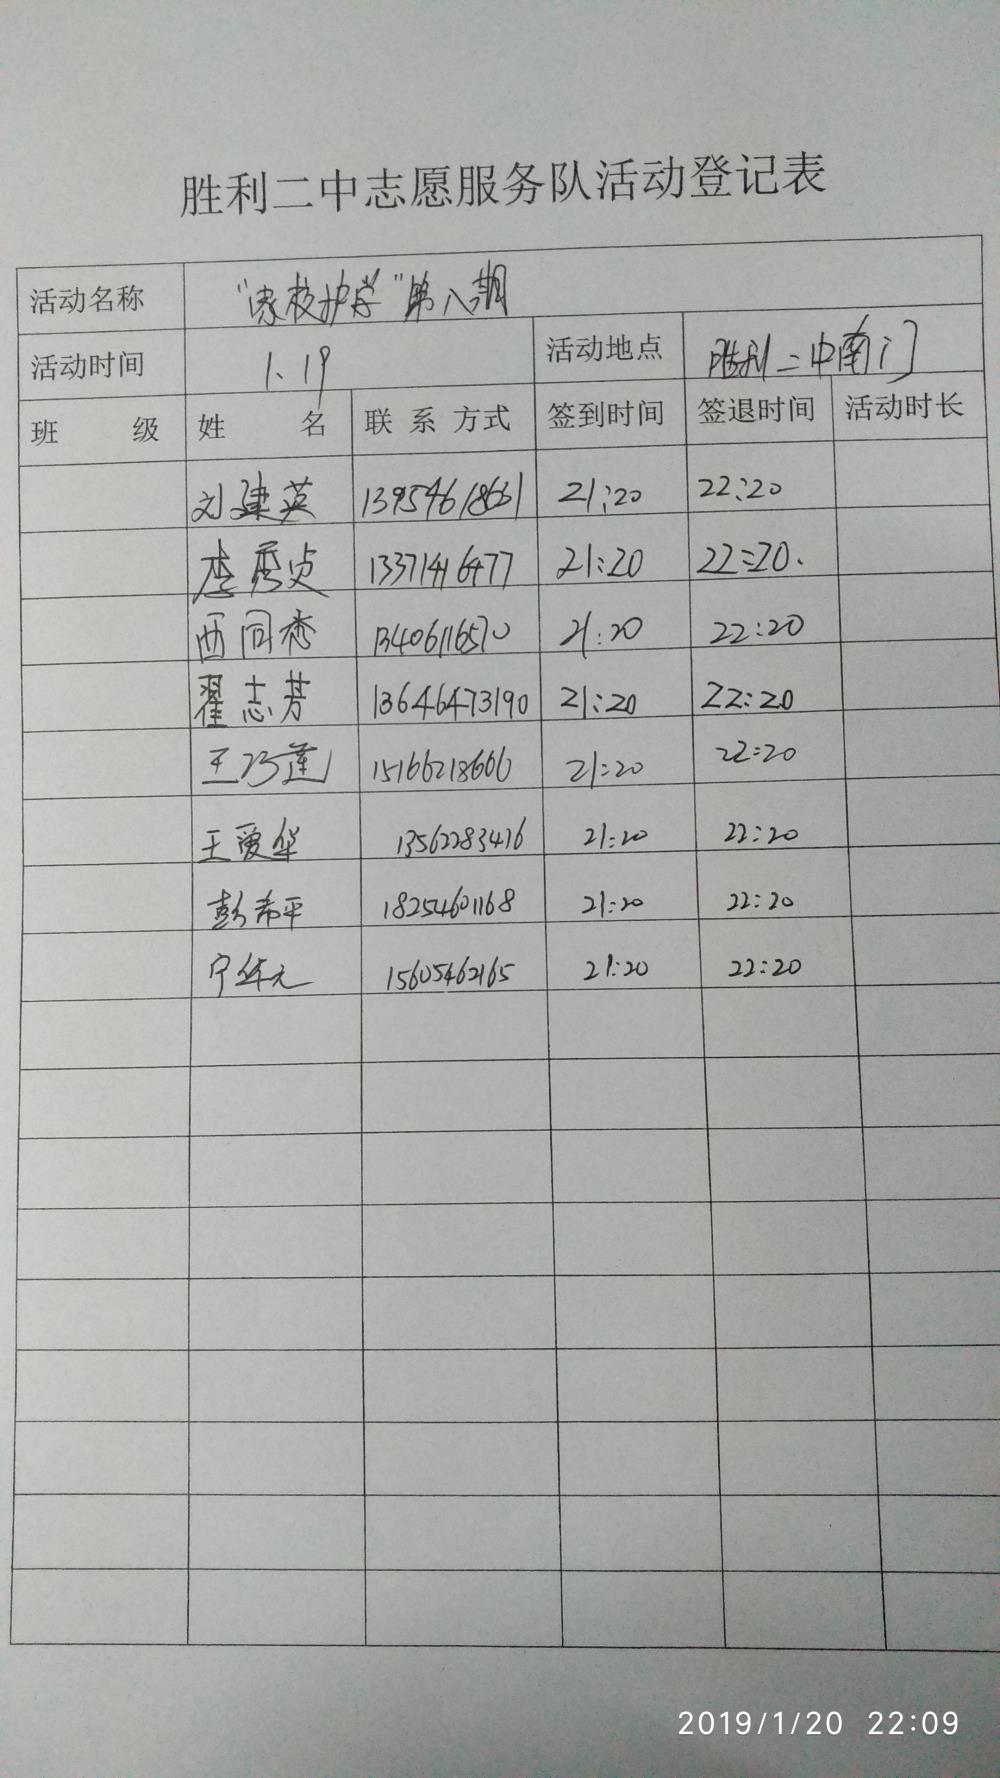 胜利二中志愿服务队活动登记表
活动名称 "家校护学"第八期
活动时间 1.19 活动地点 胜利二中南门
班 级 姓 名 联 系 方式 签到时间 签退时间 活动时长
刘建英 13954618631 21:20 22:20
李秀贞 13371416477 21:20 22:20.
西同秀 13406116570 21:20 22:20
翟志芳 13646473190 21:20 22:20
王巧莲 15166218666 21:20 22:20
王爱华 13562283416 21:20 22:20
彭希平 18254601168 21:20 22:20
宁华元 15605462165 21:20 22:20
2019/1/20 22:09